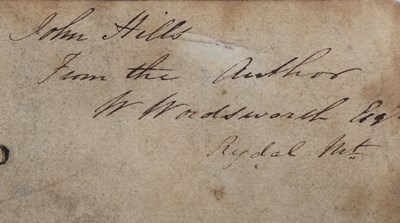 John Hills
From the Author
W Wordsworth Esqr
Rydal Mt.